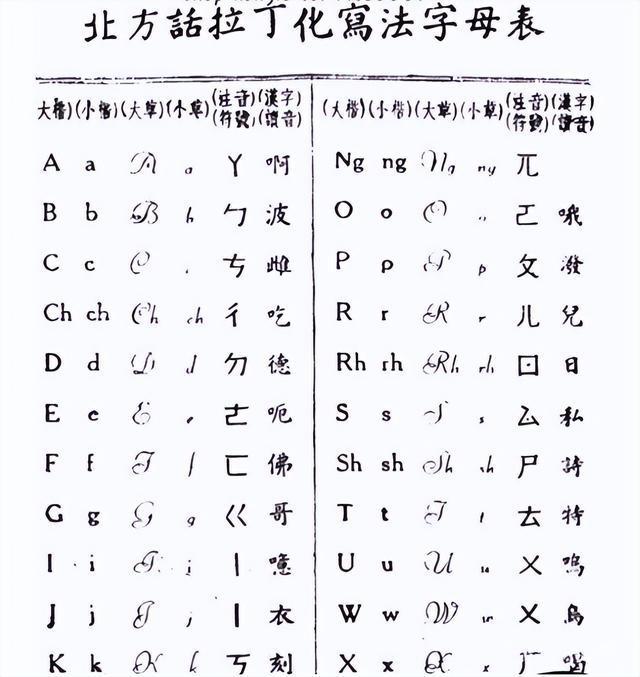 北方話拉丁化寫法字母表
大楷) (小楷) (大草) (小草) (注音符號) (漢字讀音)
A a A a ㄚ 啊
B b B b ㄅ 波
C c C c ㄘ 雌
Ch ch Ch ch ㄔ 吃
D d D d ㄉ 德
E e E e ㄜ 呃
F f F f ㄈ 佛
G g G g ㄍ 哥
I i I i ㄧ 噫
J j J j ㄧ 衣
K k K k ㄎ 刻
(大楷) (小楷) (大草) (小草) (注音符號) (漢字讀音)
Ng ng Ng ng ㄫ
O o O o ㄛ 哦
P p P p ㄆ 潑
R r R r ㄦ 兒
Rh rh Rh rh ㄖ 日
S s S s ㄙ 私
Sh sh Sh sh ㄕ 詩
T t T t ㄊ 特
U u U u ㄨ 嗚
W w W w ㄨ 烏
X x X x ㄏ 喝